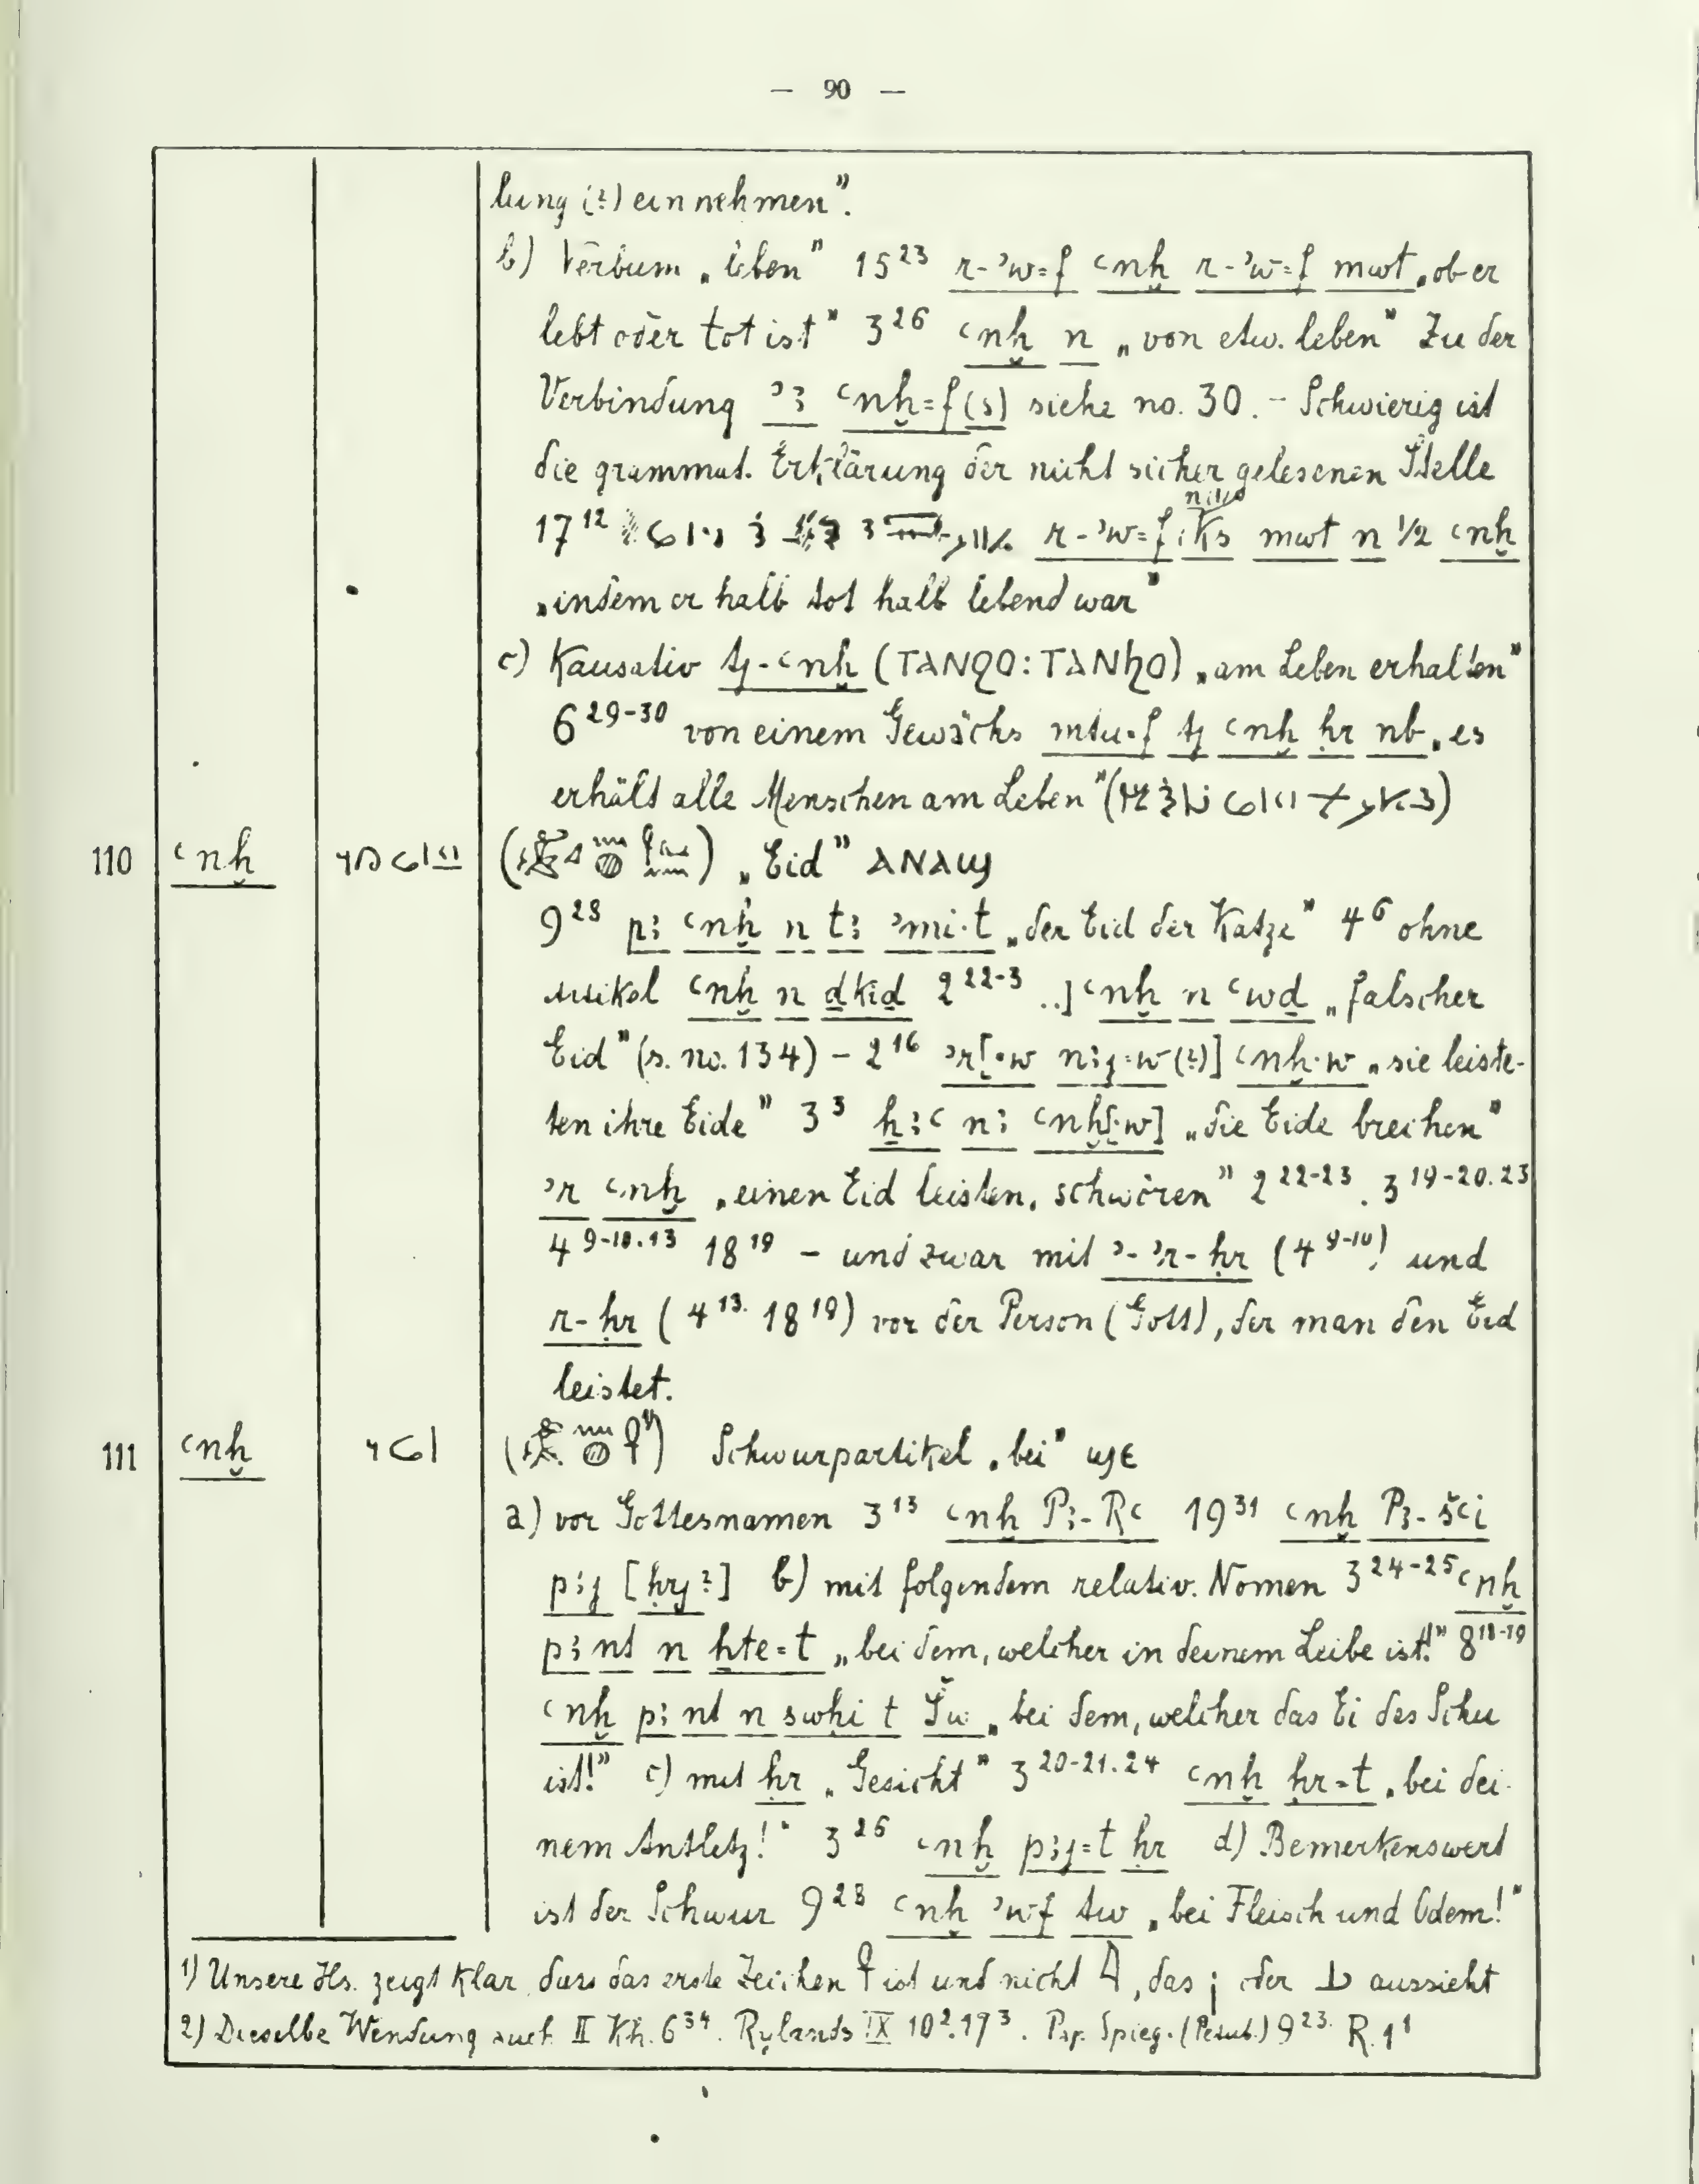 — 90 —
lung (?) einnehmen".
b) Verbum „leben" 15²³ r-ʾw=f ꜥnḫ r-ʾw=f mwt „ob er
lebt oder tot ist" 3²⁶ ꜥnḫ n „von etw. leben" Zu der
Verbindung ʾꜣ ꜥnḫ=f(s) siehe no. 30. – Schwierig ist
die grammat. Erklärung der nicht sicher gelesenen Stelle
17¹² r-ʾw=f Ks mwt n ½ ꜥnḫ
„indem er halb tot halb lebend war"
c) Kausativ tj-ꜥnḫ (ⲧⲁⲛϩⲟ : ⲧⲁⲛϧⲟ) „am Leben erhalten"
6²⁹⁻³⁰ von einem Gewächs mtu=f tj ꜥnḫ ḥr nb „es
erhält alle Menschen am Leben" ( )
110 ꜥnḫ ( ) „Eid" ⲁⲛⲁϣ
9²⁸ pꜣ ꜥnḫ n tꜣ ʾmi·t „der Eid der Katze" 4⁶ ohne
Artikel ꜥnḫ n ḏkiḏ 2²²⁻³ ..] ꜥnḫ n ꜥwḏ „falscher
Eid" (s. no. 134) – 2¹⁶ ʾr[=w nꜣj=w (?)] ꜥnḫ·w „sie leiste-
ten ihre Eide" 3³ ḫꜣꜥ nꜣ ꜥnḫ[·w] „die Eide brechen"
ʾr ꜥnḫ „einen Eid leisten, schwören" 2²²⁻²³. 3¹⁹⁻²⁰·²³
4⁹⁻¹⁰·¹³ 18¹⁹ – und zwar mit ʾ-ʾr-ḥr (4⁹⁻¹⁰) und
r-ḥr (4¹³· 18¹⁹) vor der Person (Gott), der man den Eid
leistet.
111 ꜥnḫ ( ¹⁾) Schwurpartikel „bei" ϣⲉ
a) vor Gottesnamen 3¹³ ꜥnḫ Pꜣ-Rꜥ 19³¹ ꜥnḫ Pꜣ-šꜥi
pꜣj [ḥrj?] b) mit folgendem relativ. Nomen 3²⁴⁻²⁵ ꜥnḫ
pꜣ nt n ẖte=t „bei dem, welcher in deinem Leibe ist!" 8¹⁸⁻¹⁹
ꜥnḫ pꜣ nt n swḥi t Šw „bei dem, welcher das Ei des Schu
ist!" c) mit ḥr „Gesicht" 3²⁰⁻²¹·²⁴ ꜥnḫ ḥr=t „bei dei-
nem Antletz!" 3²⁶ ꜥnḫ pꜣj=t ḥr d) Bemerkenswert
ist der Schwur 9²⁸ ꜥnḫ ʾwf tw „bei Fleisch und Odem!"
1) Unsere Hs. zeigt klar, dass das erste Zeichen 𓋹 ist und nicht , das oder aussieht
2) Dieselbe Wendung auch II Kh. 6³⁴. Rylands IX 10²·19³. Pap. Spieg. (Petub.) 9²³· R. 1¹